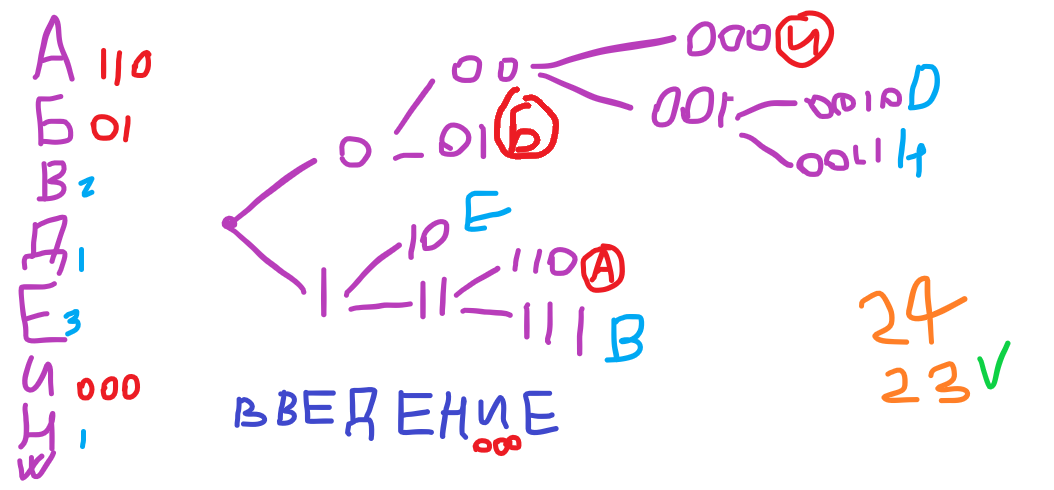 А 110
Б 01
В 2
Д 1
Е 3
И 000
Н 1
0
00
000 И
001
0010 D
0011 Н
01 Б
1
10 Е
11
110 А
111 В
ВВЕДЕНИЕ
000
24
23 ✓